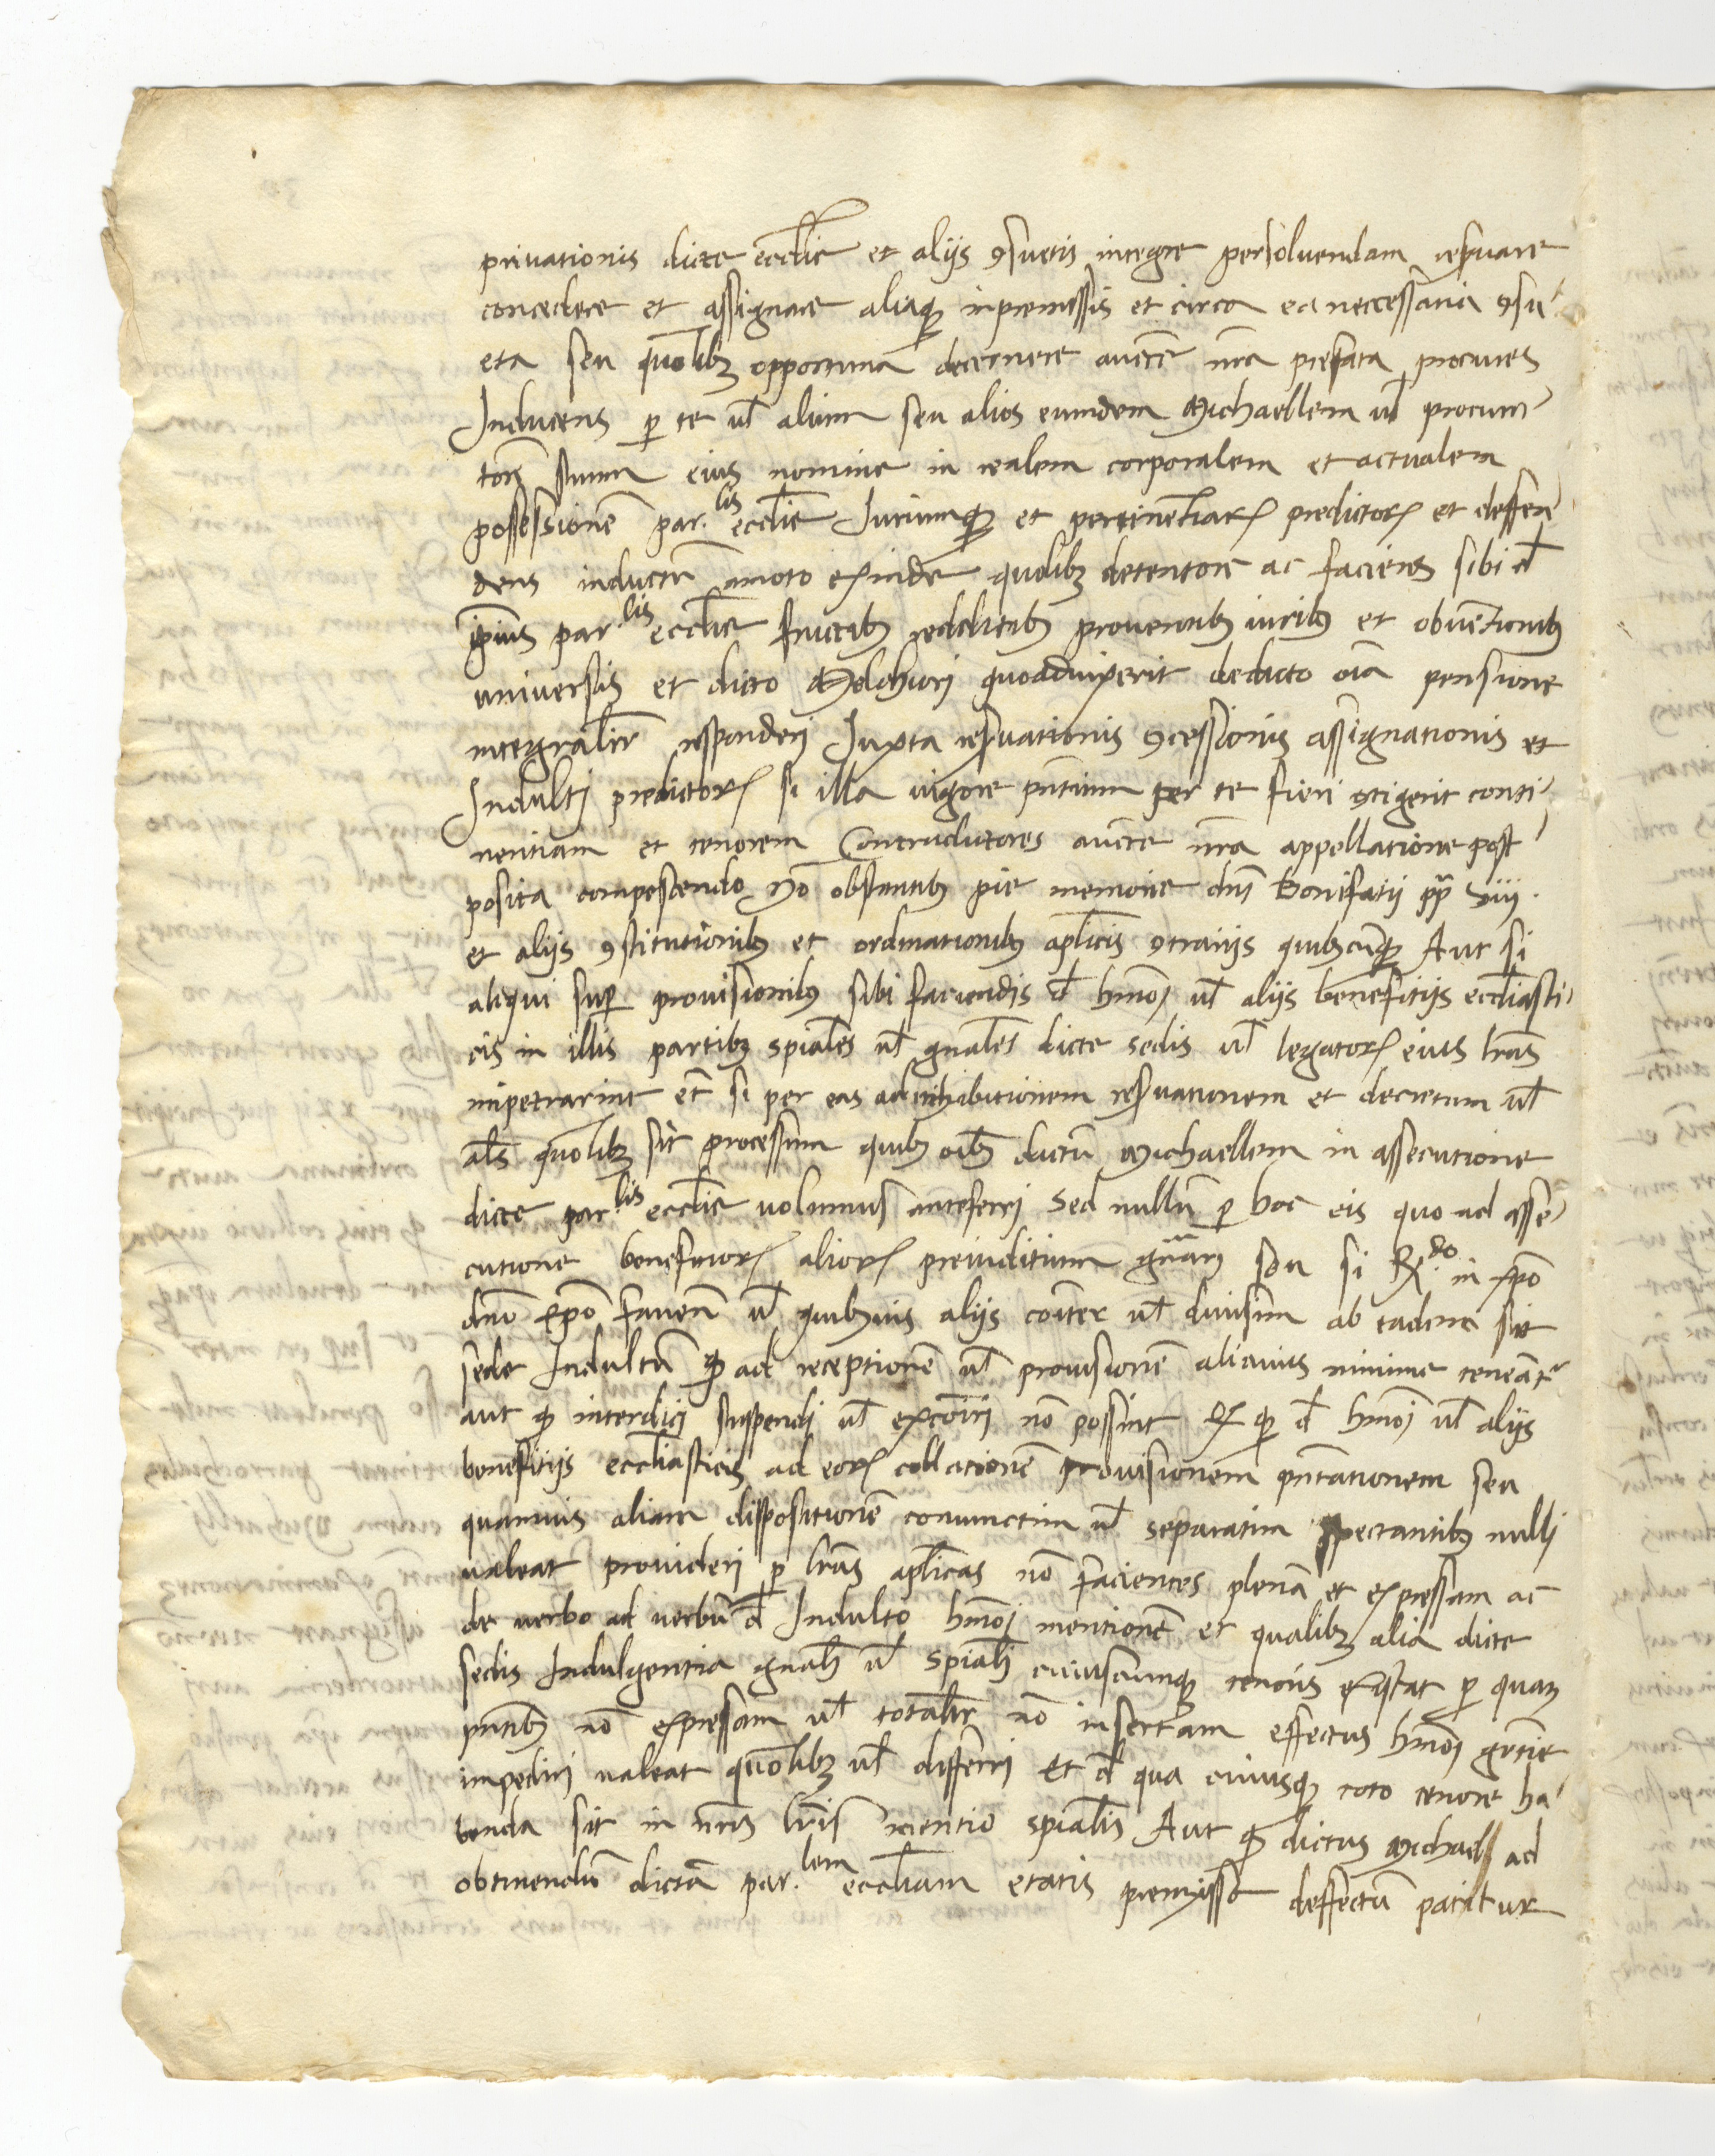 privationis dicte ecclie et alijs ꝯsuetis integre persolvendam resꝑuare
concedere et assignare aliaqꝫ in premissis et circa ea neccessaria ꝯsu-
eta seu quolibꝫ opportuna decernere aucte nra prefata procures
Inducens ꝑ te ul alium seu alios eumdem Michaellem ul procura-
tore suum eius nomine in realem corporalem et actualem
possessione par.lis ecclie Iuriumqꝫ et pertinentiarꝝ predictorꝝ et deffen-
dens inductu amoto exinde quolibꝫ detentore ac faciens sibi d
ipius par.lis ecclie fructibꝫ redditibꝫ proventibꝫ iuribꝫ et obventionibꝫ
universis et dicto Melchiori quoadvixerit dedicto oia pensione
integraliter responderi Iuxta resꝑvationis ꝯcessionis assignationis et
Indulti predictorꝝ si illa vigore pntium per te fieri ꝯtigerit conti-
nentiam et tenorem Contradictores aucte nra appellatione post-
posita compescendo No obstantibꝫ pie memorie dni Bonifatij pp viij.
et alijs ꝯstitutionibꝫ et ordinationibꝫ aplicis ꝯtrariis quibꝫcuqꝫ Aut si
aliqui suꝑ provisionibꝫ sibi faciendis d hmoi ul alijs benefitijs eccliasti-
cis in illis partibꝫ spiales ul gnales dicte sedis ul legatorꝝ eius lras
impetrarint et si per eas ad inhibitionem resꝑvationem et decretum ul
als quolibꝫ sit processum quibꝫ oibꝫ dictu Michaellem in assecutione
dicte par.lis ecclie volumus anteferri Sed nullu ꝑ hoc eis quo ad asse-
cutione benefitiorꝝ aliorꝝ preiuditium gnari seu si R.do in xpo
dno Epo faven ul quibusvis alijs coiter ul divisim ab eadem sit
sede Indultu qꝫ ad receptione ul provisione alicuius minime teneant
aut qꝫ interdici suspendi ul excoicari no possint Et qꝫ d hmoi ul alijs
benefitijs eccliasticis ad eorꝝ collatione provisionem pntationem seu
quamvis aliam dispositione coniunctim ul separatim spectantibꝫ nulli
valeat provideri ꝑ lras aplicas no facientes plena et expressam ac
de verbo ad verbu d Indulto hmoi mentione et qualibꝫ alia dicte
sedis Indulgentia gnali ul spiali cuiuscumqꝫ tenoris existat ꝑ quaꝫ
pntibꝫ no expressam ul totaliter no insertam effectus hmoi gratie
impediri valeat quolibꝫ ul differri Et d qua cuiusqꝫ toto tenore ha-
benda sit in nris lris mentio spialis Aut qꝫ dictus Michaell ad
obtinendu dicta par.lem eccliam etatis premisso deffectu patitur